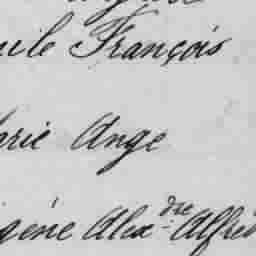 ile François
arie Ange
gène Alex.dre Alfred